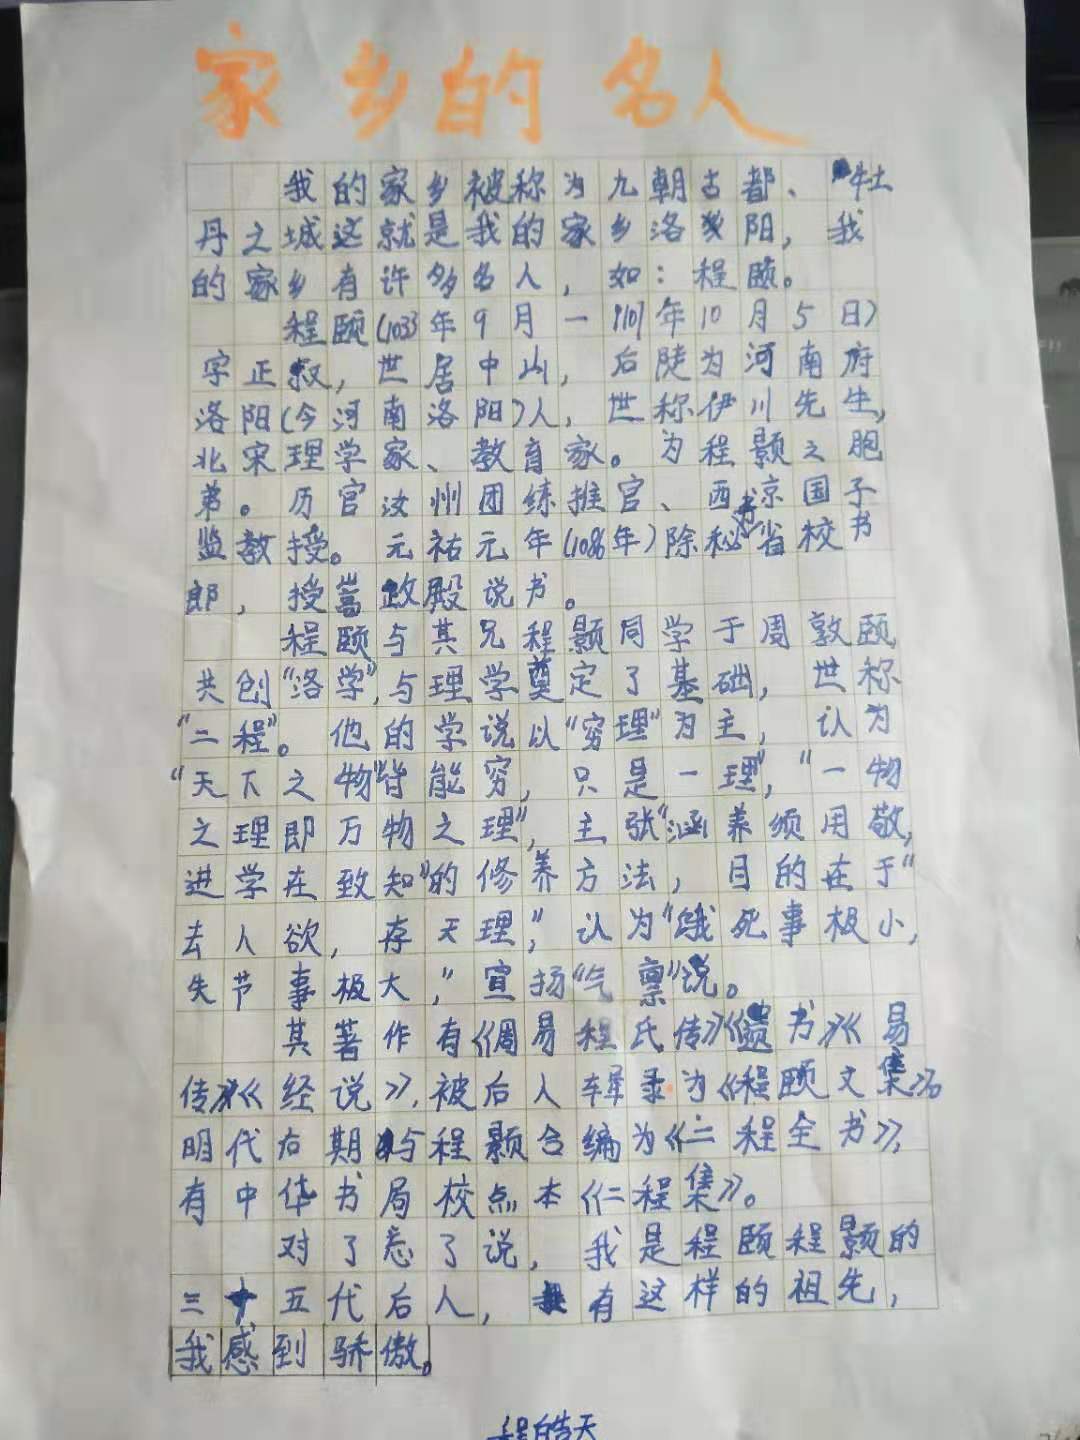 家乡的名人
我的家乡被称为九朝古都、牡
丹之城这就是我的家乡洛阳，我
的家乡有许多名人，如：程颐。
程颐(1033年9月一1107年10月5日)
字正叔，世居中山，后陡为河南府
洛阳(今河南洛阳)人，世称伊川先生，
北宋理学家、教育家。为程颢之胞
弟。历官汝州团练推官、西凉国子
监教授。元祐元年(1086年)除秘书省校书
郎，授嵩政殿说书。
程颐与其兄程颢同学于周敦颐
共创“洛学”，与理学奠定了基础，世称
“二程”。他的学说以“穷理”为主，认为
“天下之物皆能穷，只是一理”，“一物
之理即万物之理”，主张“涵养须用敬，
进学在致知”的修养方法，目的在于“
去人欲，存天理”，认为“饿死事极小，
失节事极大，”宣扬“气禀”说。
其著作有《周易程氏传》《遗书》《易
传》《经说》，被后人辑录为《程颐文集》。
明代后期与程颢合编为《二程全书》，
有中华书局校点本《二程集》。
对了忘了说，我是程颐程颢的
三十五代后人，有这样的祖先，
我感到骄傲。
程皓天